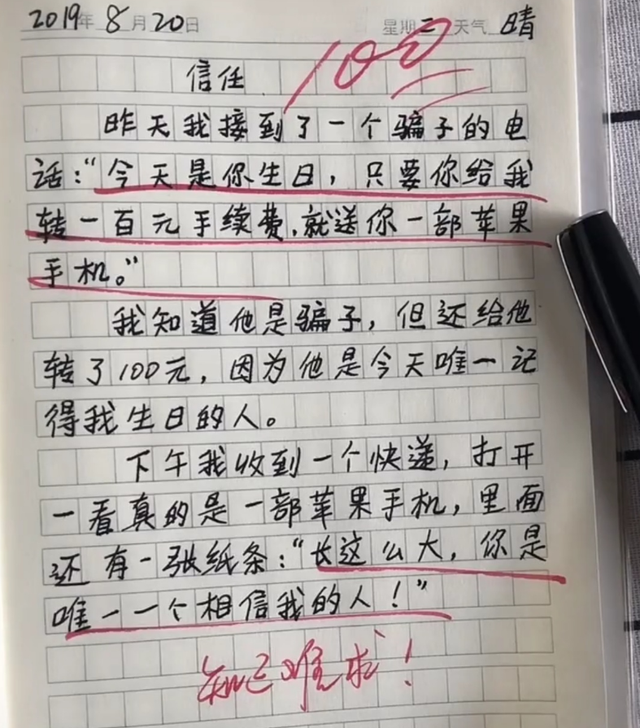 2019年8月20日 星期二 天气 晴
100
信任
昨天我接到了一个骗子的电
话：“今天是你生日，只要你给我
转一百元手续费，就送你一部苹果
手机。”
我知道他是骗子，但还给他
转了100元，因为他是今天唯一记
得我生日的人。
下午我收到一个快递，打开
一看真的是一部苹果手机，里面
还有一张纸条：“长这么大，你是
唯一一个相信我的人！”
知己难求！